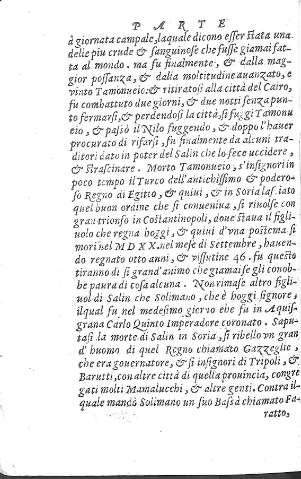 PARTE
à giornata campale, laquale dicono esser stata una
delle piu crude & sanguinose che fusse giamai fat-
ta al mondo. ma fu finalmente, & dalla mag-
gior possanza, & dalla moltitudine auanzato, e
vinto Tamonueio: & ritiratosi alla città del Cairo,
fu combattuto due giorni, & due notti senza pun-
to fermarsi, & perdendosi la città, si fuggi Tamonu
eio, & passò il Nilo fuggendo, & doppo l'hauer
procurato di rifarsi, fu finalmente da alcuni tra-
ditori dato in poter del Salin che lo fece uccidere,
& strascinare. Morto Tamonueio, s'insignorì in
poco tempo il Turco dell'antichissimo & podero-
so Regno di Egitto, & quiui, & in Soria lasciato
quel buon ordine che si conueniua, si riuolse con
gran trionfo in Costantinopoli, doue staua il figli-
uolo che regna hoggi, & quiui d'vna postema si
morì nel M D XX. nel mese di Settembre, hauen-
do regnato otto anni, & vissutine 46. fu questo
tiranno di si grand'animo che giamai se gli conob-
be paura di cosa alcuna. Non rimase altro figli-
uol di Salin che Solimano, che è hoggi signore,
ilqual fu nel medesimo giorno che fu in Aquis-
grana Carlo Quinto Imperadore coronato. Sapu-
tasi la morte di Salin in Soria, si ribello un gran
d'huomo di quel Regno chiamato Gazzeglie,
che era gouernatore, & si insignorì di Tripoli, &
Barutti, con altre città di quella prouincia, congre
gati molti Mamalucchi, & altre genti. Contra il-
quale mandò Solimano un suo Bassà chiamato Fa-
ratto,